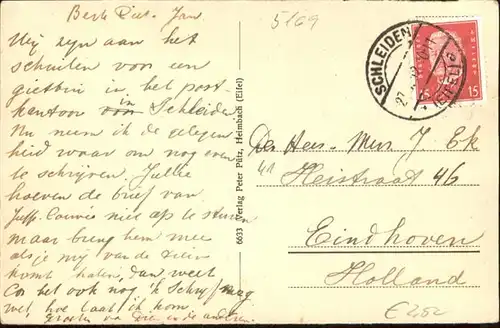 Beste Piet. Jan
Wij zijn aan het
schuilen voor een
gietbui in het post-
kantoor in Schleiden
Nu neem ik de gelegen
heid waar om nog even
te schrijven. Jullie
hoeven de brief van
Juff. Louwie niet op te sturen
maar breng hem mee
als je mij van de trein
komt halen, dan weet
Cor het ook nog. 'k Schrijf nog
wel, hoe laat ik kom.
groeten van Zien en de anderen.
6633 Verlag Peter Pütz, Heimbach (Eifel)
5169
SCHLEIDEN
(EIFEL)
15 15
Den Heer en Mevr J. Ek
41 Heistraat 46
Eindhoven
Holland